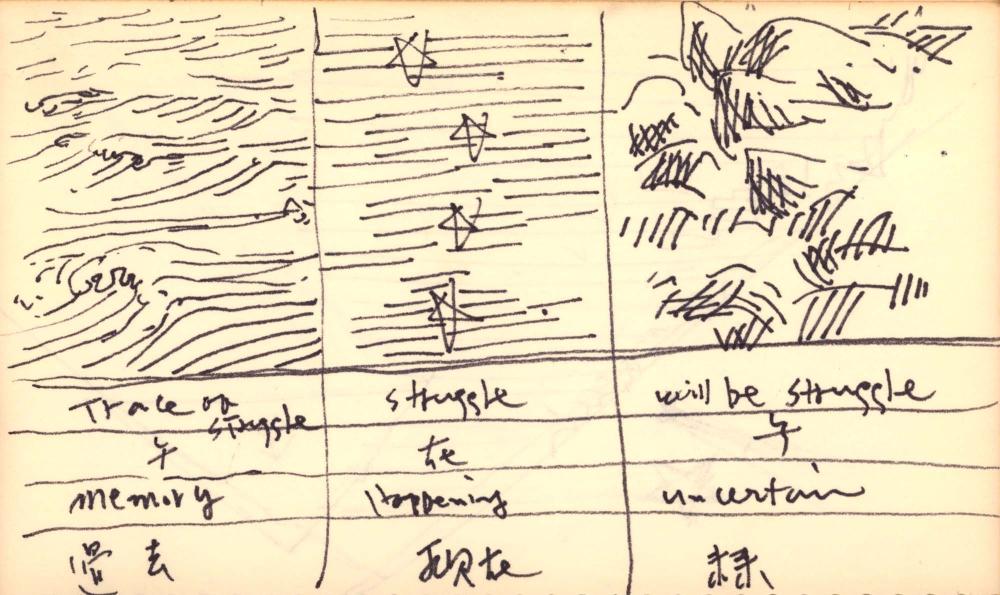 Trace of struggle
struggle
will be struggle
在
memory
Happening
uncertain
过去
现在
未来